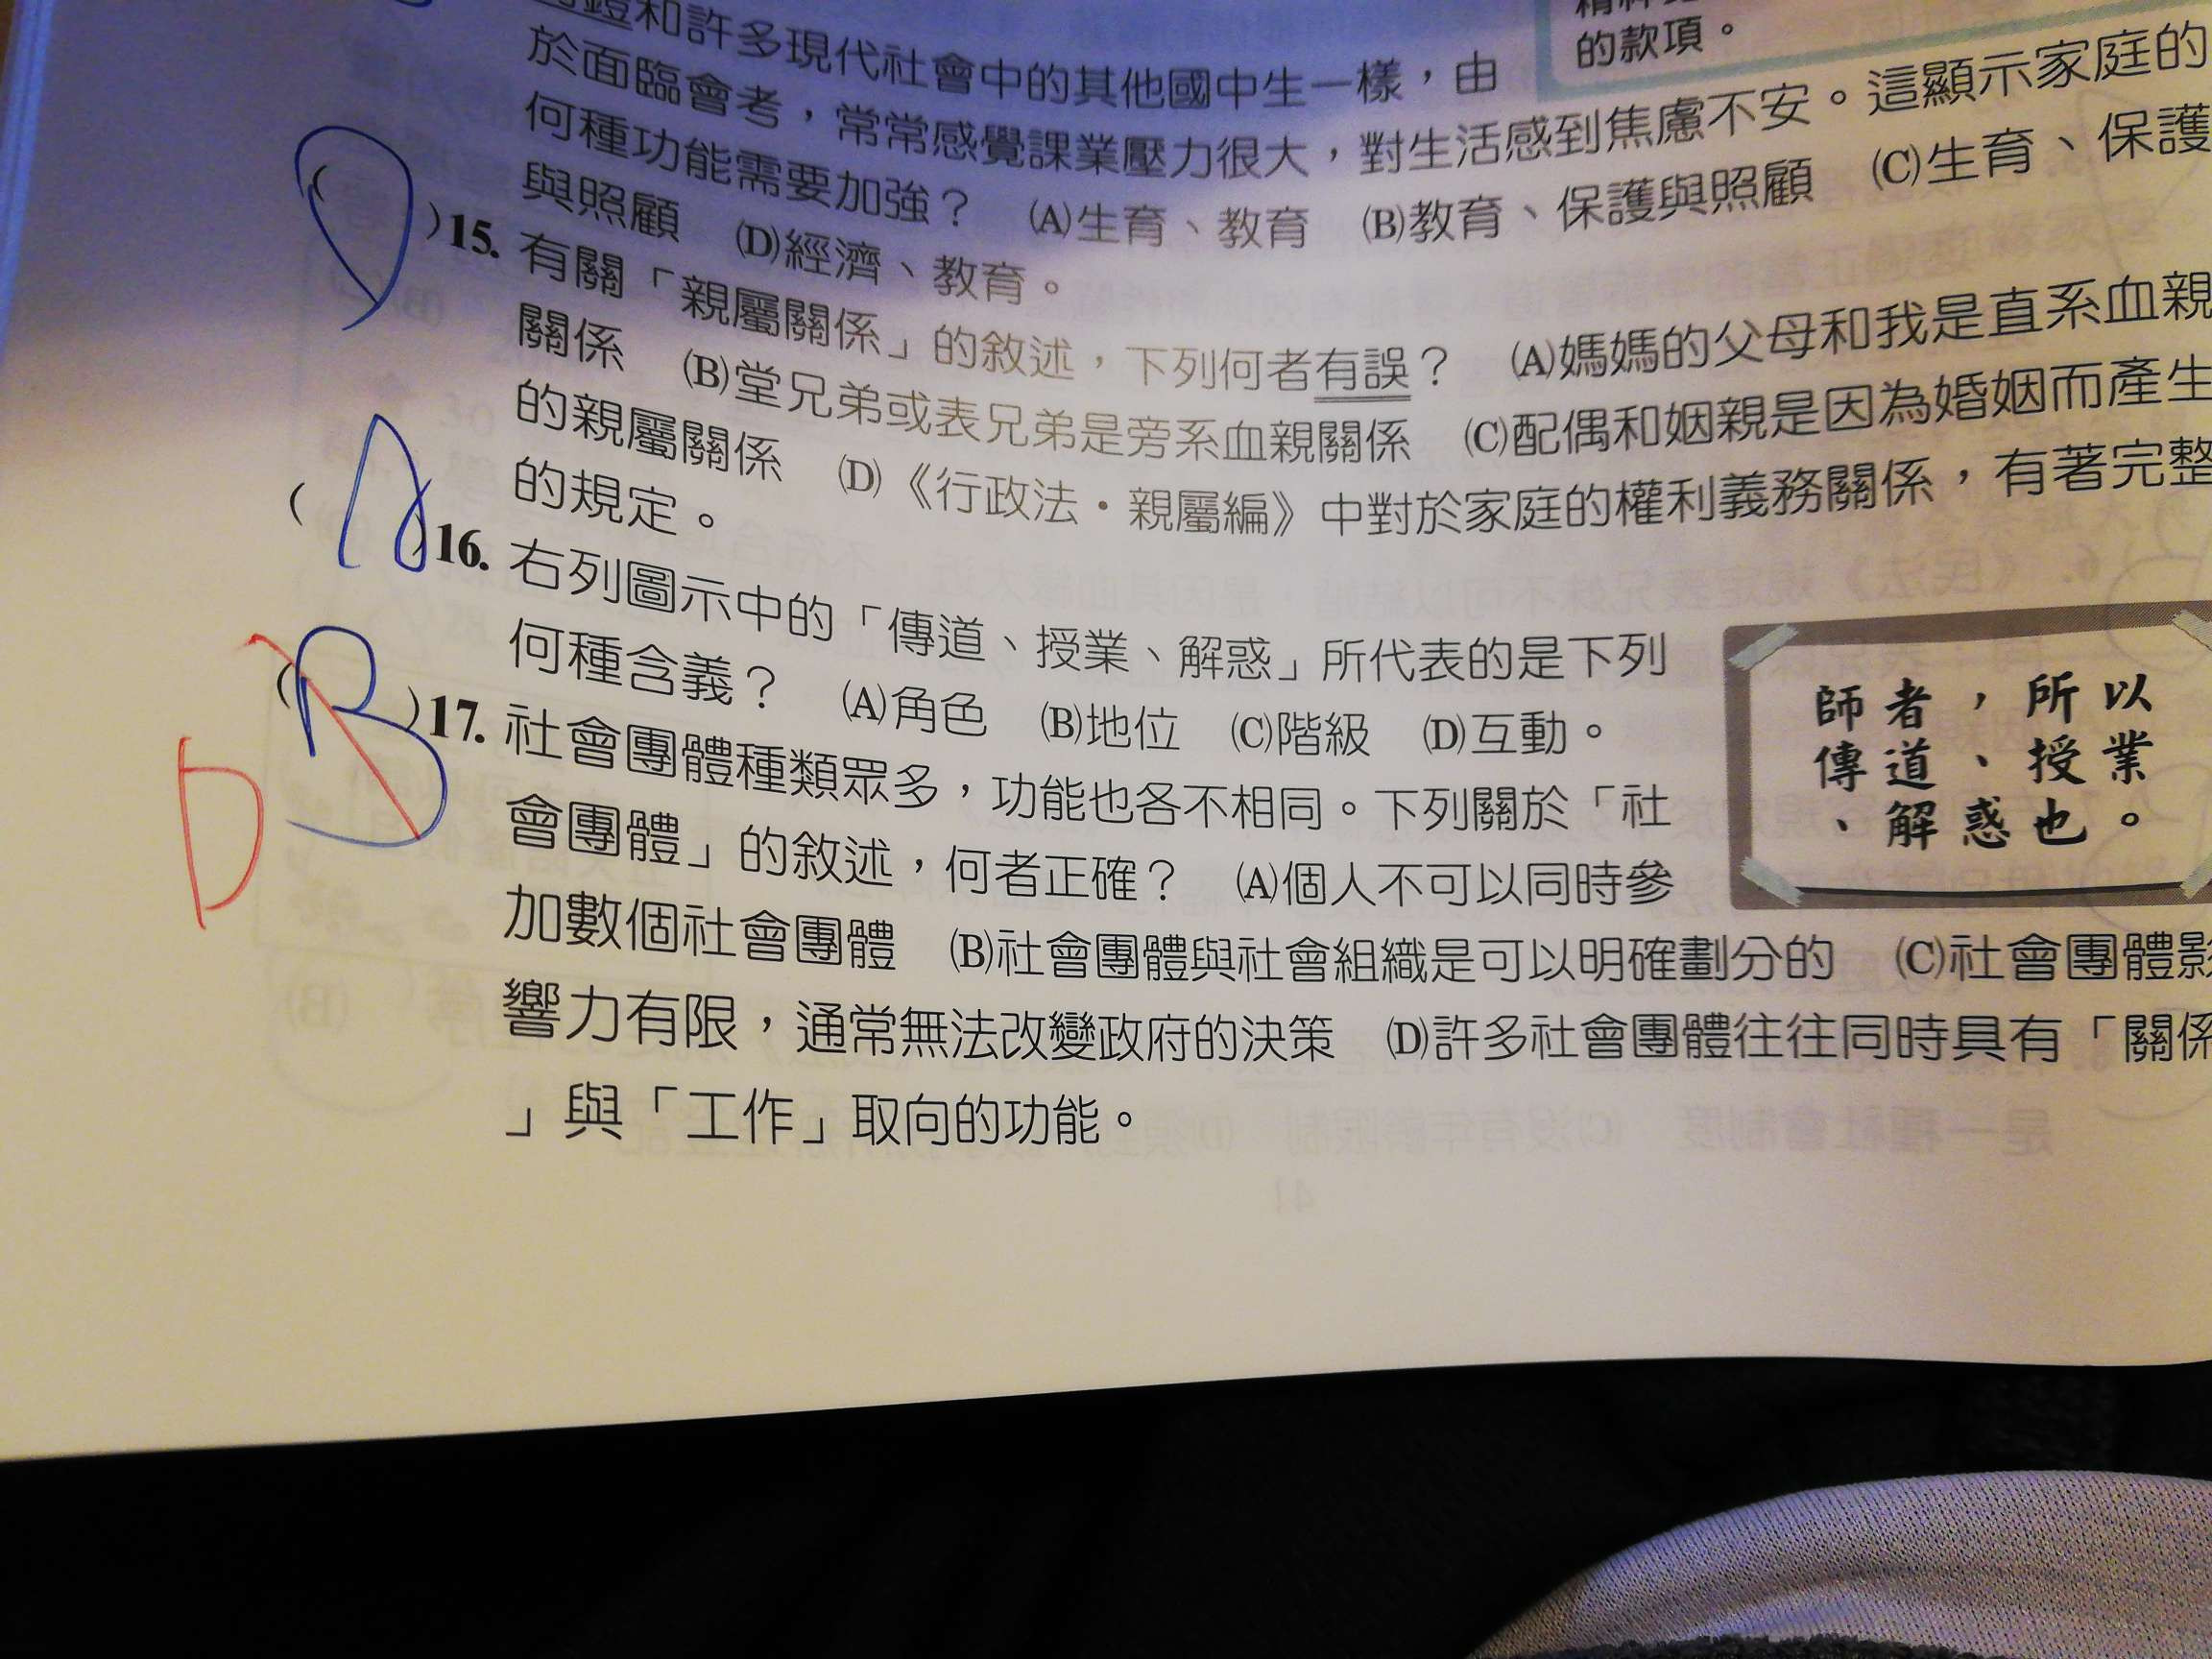 的款項。
和許多現代社會中的其他國中生一樣，由
於面臨會考，常常感覺課業壓力很大，對生活感到焦慮不安。這顯示家庭的
何種功能需要加強？ (A)生育、教育 (B)教育、保護與照顧 (C)生育、保護
與照顧 (D)經濟、教育。
D
( )15. 有關「親屬關係」的敘述，下列何者有誤？ (A)媽媽的父母和我是直系血親
關係 (B)堂兄弟或表兄弟是旁系血親關係 (C)配偶和姻親是因為婚姻而產生
的親屬關係 (D)《行政法·親屬編》中對於家庭的權利義務關係，有著完整
的規定。
A
( )16. 右列圖示中的「傳道、授業、解惑」所代表的是下列
何種含義？ (A)角色 (B)地位 (C)階級 (D)互動。
師者，所以
傳道、授業
、解惑也。
B
D
( )17. 社會團體種類眾多，功能也各不相同。下列關於「社
會團體」的敘述，何者正確？ (A)個人不可以同時參
加數個社會團體 (B)社會團體與社會組織是可以明確劃分的 (C)社會團體影
響力有限，通常無法改變政府的決策 (D)許多社會團體往往同時具有「關係
」與「工作」取向的功能。